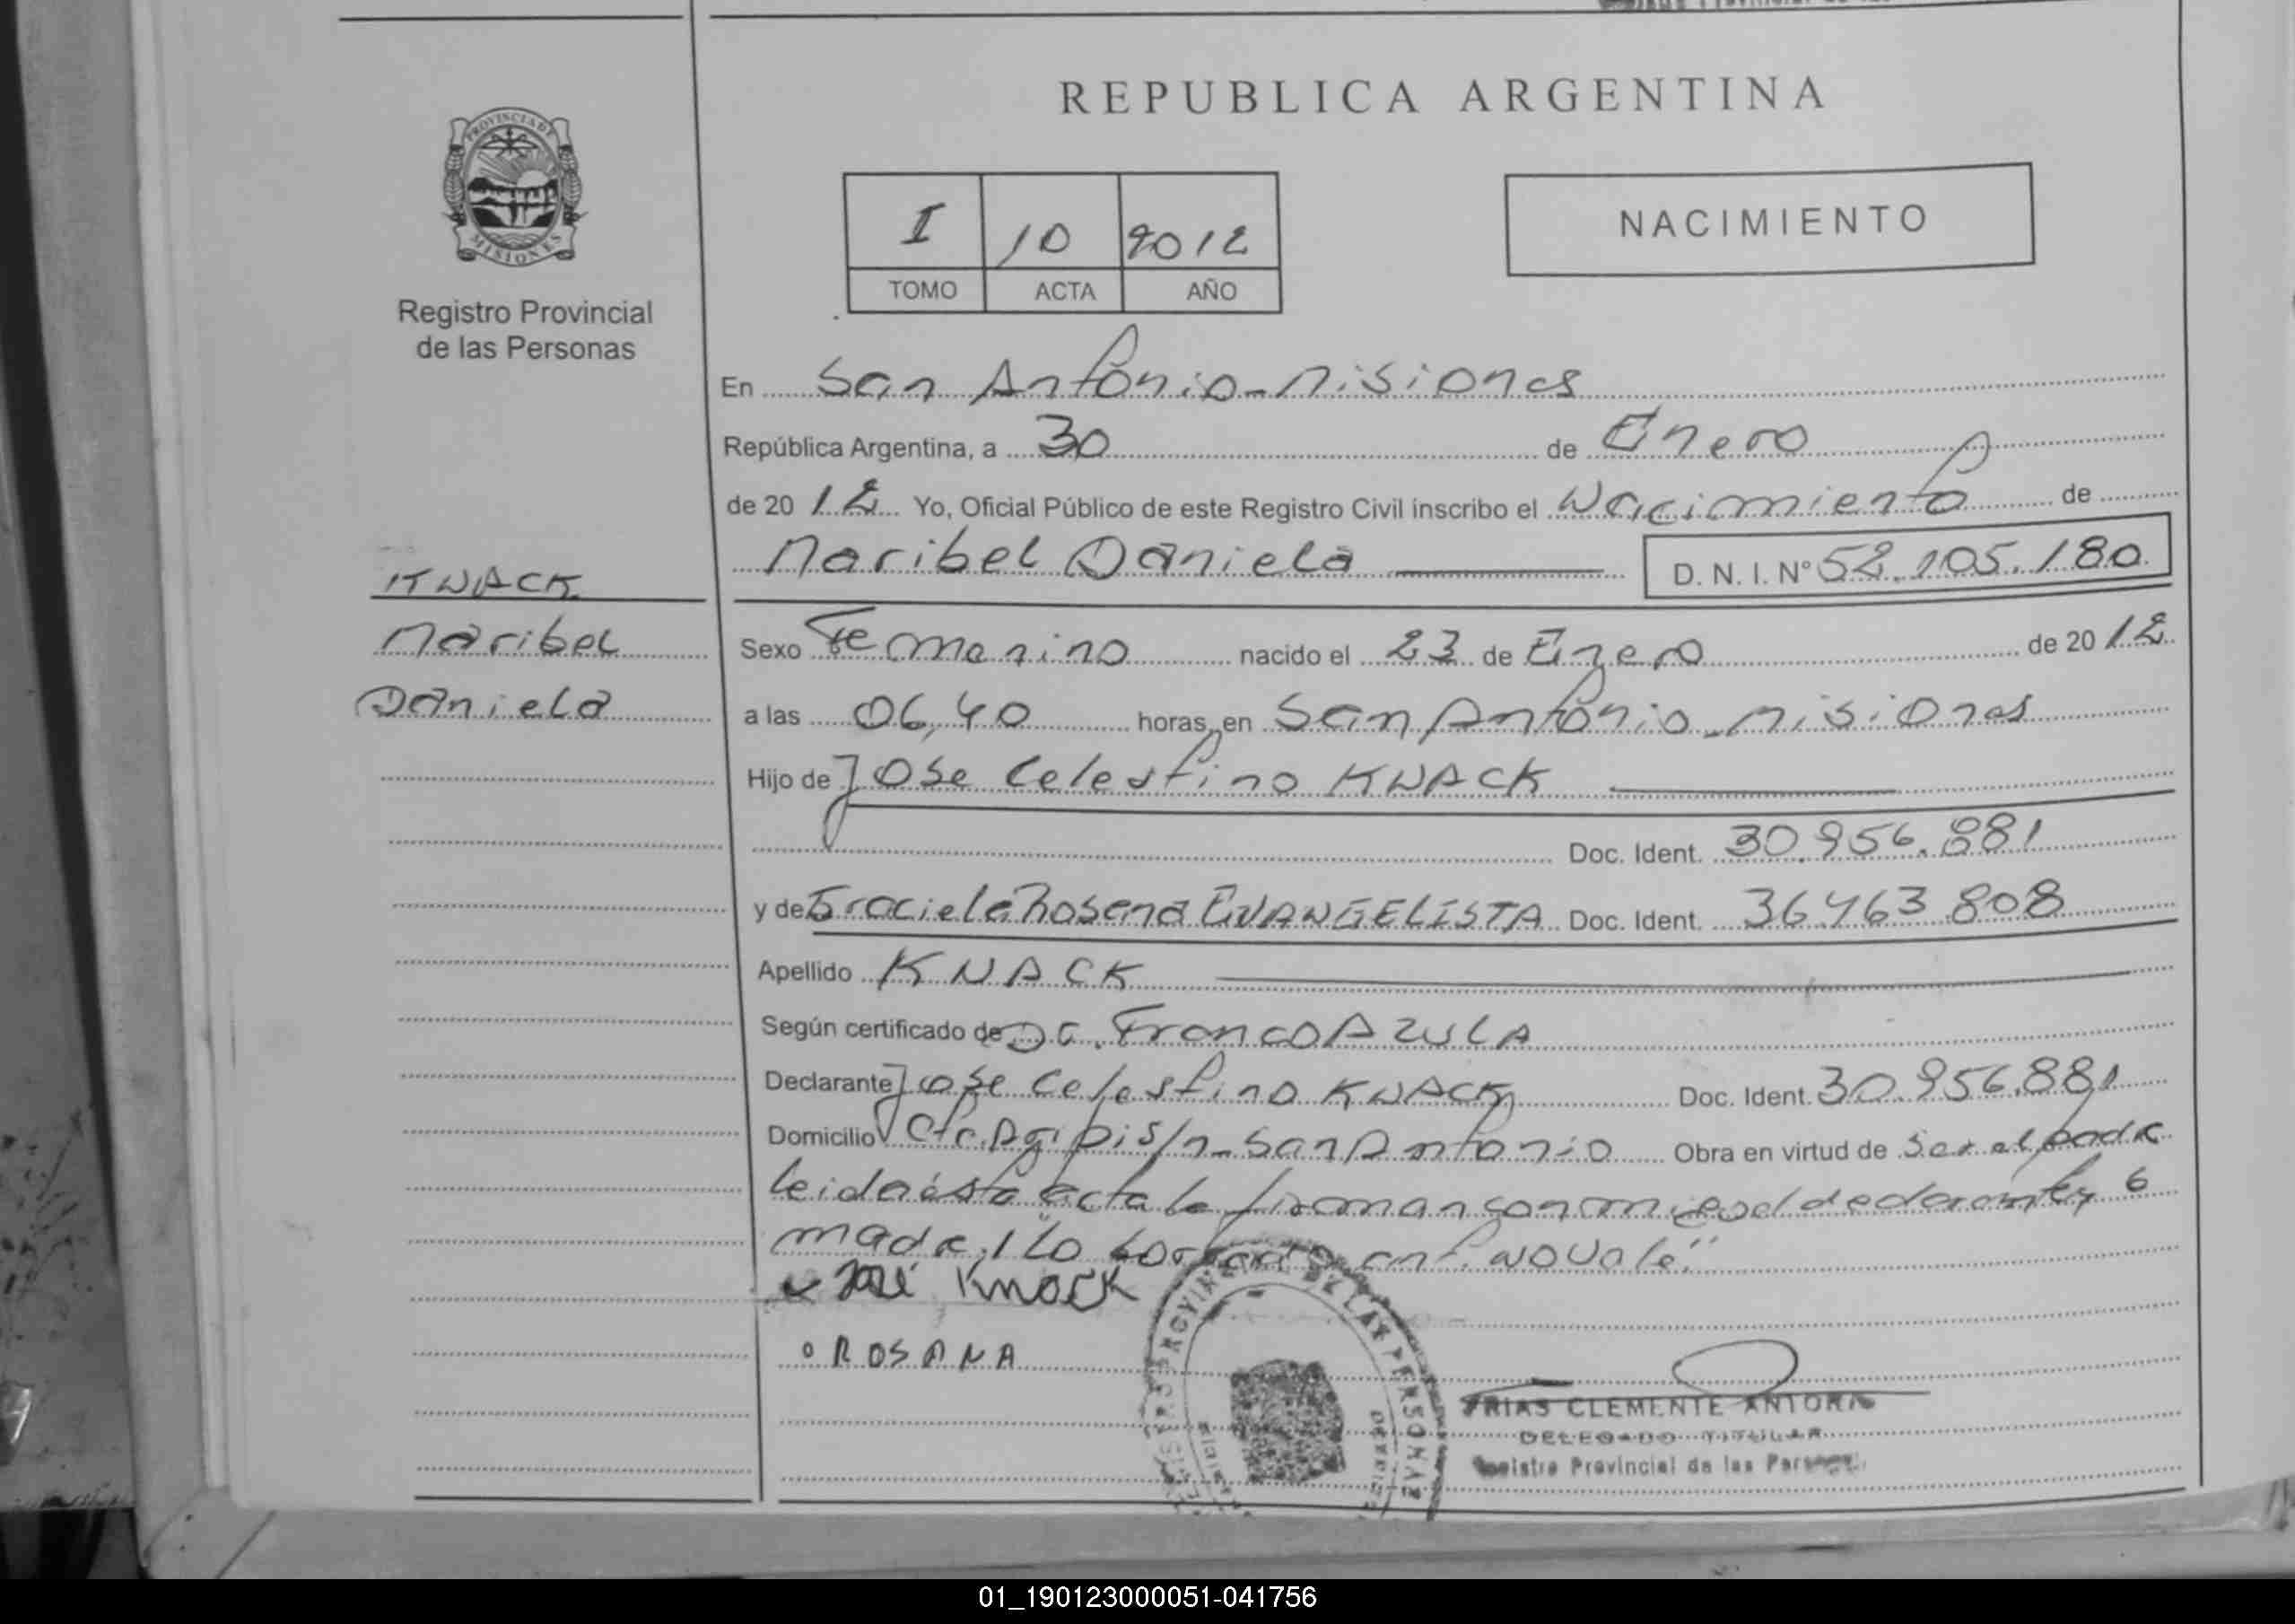 REPUBLICA ARGENTINA
PROVINCIA DE
MISIONES
Registro Provincial
de las Personas
I 10 2012
TOMO ACTA AÑO
NACIMIENTO
En San Antonio - Misiones
República Argentina, a 30 de Enero
de 20 12 Yo, Oficial Público de este Registro Civil inscribo el Nacimiento de
Maribel Daniela
D. N. I. N° 52.105.180
KNACK
Maribel
Daniela
Sexo Femenino nacido el 23 de Enero de 20 12
a las 06,40 horas, en San Antonio - Misiones
Hijo de Jose Celestino KNACK
Doc. Ident. 30.956.881
y de Graciela Rosana EVANGELISTA Doc. Ident. 36.463.808
Apellido KNACK
Según certificado de Dr. Franco AZULA
Declarante Jose Celestino KNACK Doc. Ident. 30.956.881
Domicilio s/n - San Antonio Obra en virtud de ser el padre
leida ésta acta la firman conmigo el declarante y
madre, lo borrado no vale"
José Knack
ROSANA
FRIAS CLEMENTE ANTONIO
DELEGADO TITULAR
Registro Provincial de las Personas
01_190123000051-041756